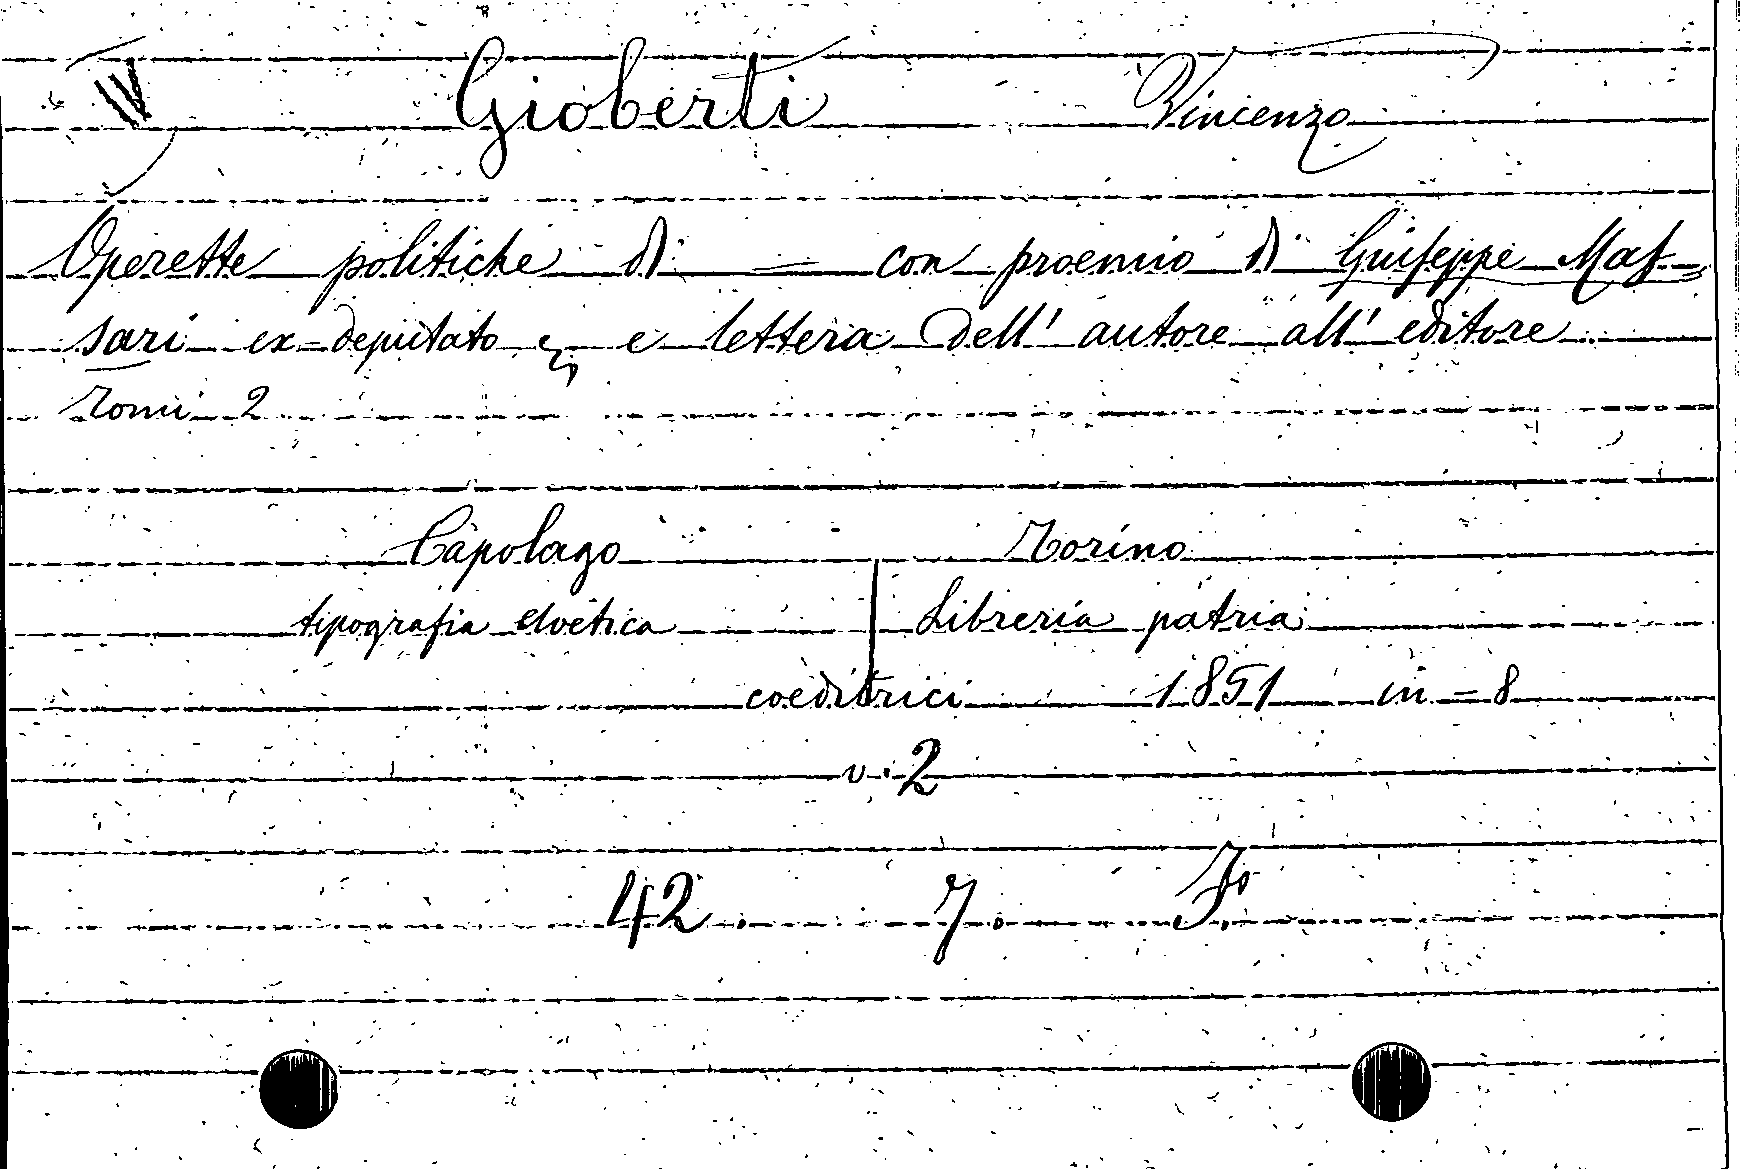 IV Gioberti Vincenzo
Operette politiche di — con proemio di Giuseppe Mas=
sari ex=deputato e lettera dell' autore all' editore
Tomi 2
Capolago Torino
tipografia elvetica Libreria patria
coeditrici 1851 in=8
v. 2
42. 7. F.